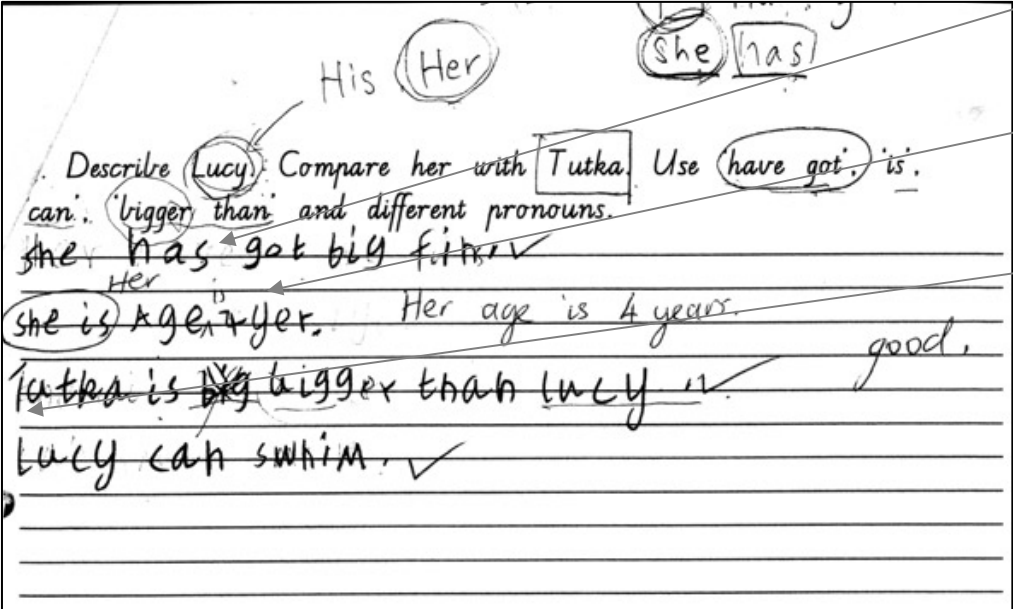 she has
His Her
. Describe Lucy. Compare her with Tutka. Use 'have got', 'is',
'can', 'bigger than' and different pronouns.
she has got big fin.
Her is
she is Age 4 yer. Her age is 4 years.
good.
Tutka is big bigger than lucy.
Lucy can swhim.